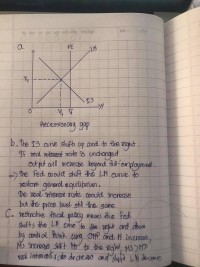 a.
r
FE
LM
r₁
IS
Y₁ Y
Y
Recessionary gap
b. The IS curve shift up and to the right.
If real interest rate is unchanged
output will increase beyond full-employment.
=> the Fed could shift the LM curve to
restore general equilibrium.
the real interest rate would increase
but the price level still the same.
C. restrictive fiscal policy means the Fed
shifts the LM curve to the right and down
by control
MS increase shift to the right,
real interest rate decrease and shift LM